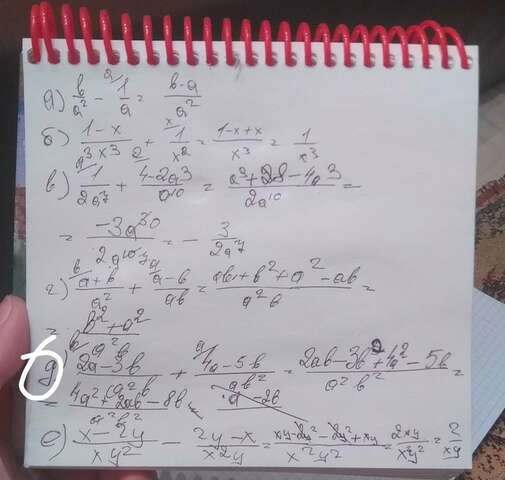 а) b/a² - 1/a = b-a/a²
б) 1-x/x³ + 1/x² = 1-x+x/x³ = 1/x³
в) 1/2a⁷ + 4-2a³/a¹⁰ = a³+8-4a³/2a¹⁰ =
= -3a³/2a¹⁰ = - 3/2a⁷
г) a+b/a² + a-b/ab = ab+b²+a²-ab/a²b =
= b²+a²/a²b
д) 2a-3b/a²b + 4a-5b/ab² = 2ab-3b²+4a²-5b/a²b² =
= 4a²+2ab-8b/a²b²
е) x-2y/xy² - 2y-x/x²y = xy-2y²+xy/x²y² = 2xy/x²y² = 2/xy